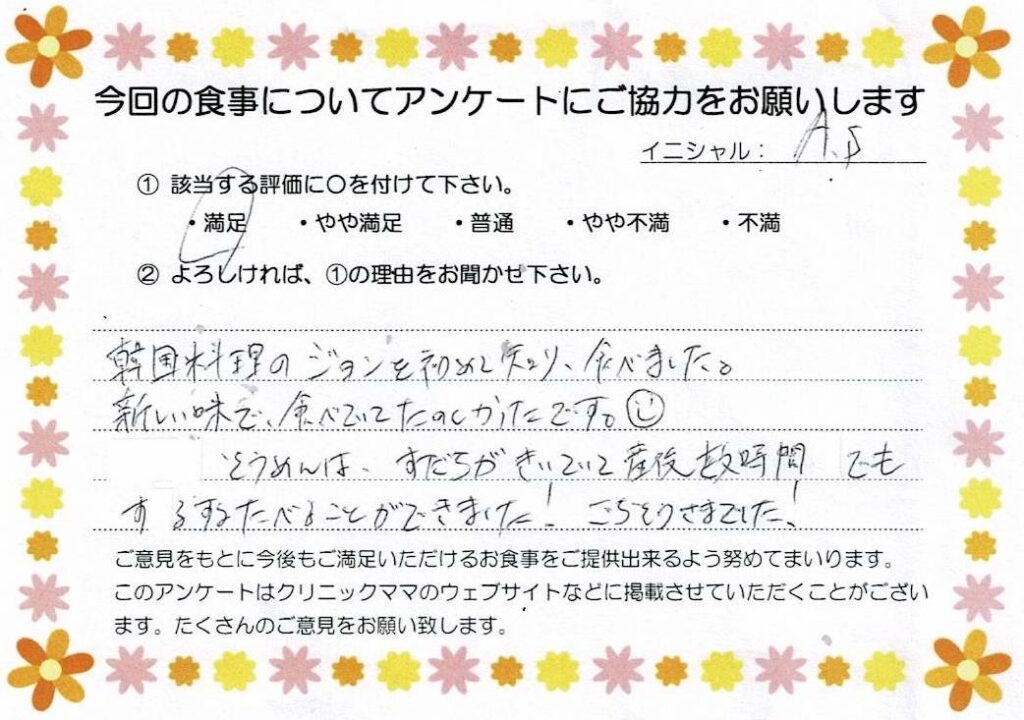 今回の食事についてアンケートにご協力をお願いします
イニシャル： A.
① 該当する評価に〇を付けて下さい。
・満足 ・やや満足 ・普通 ・やや不満 ・不満
② よろしければ、①の理由をお聞かせ下さい。
韓国料理のジョンを初めて知り、食べました。
新しい味で、食べていてたのしかったです。
そうめんは、すだちがきいていて産後数時間でも
するするたべることができました！ ごちそうさまでした！
ご意見をもとに今後もご満足いただけるお食事をご提供出来るよう努めてまいります。
このアンケートはクリニックママのウェブサイトなどに掲載させていただくことがござい
ます。たくさんのご意見をお願い致します。